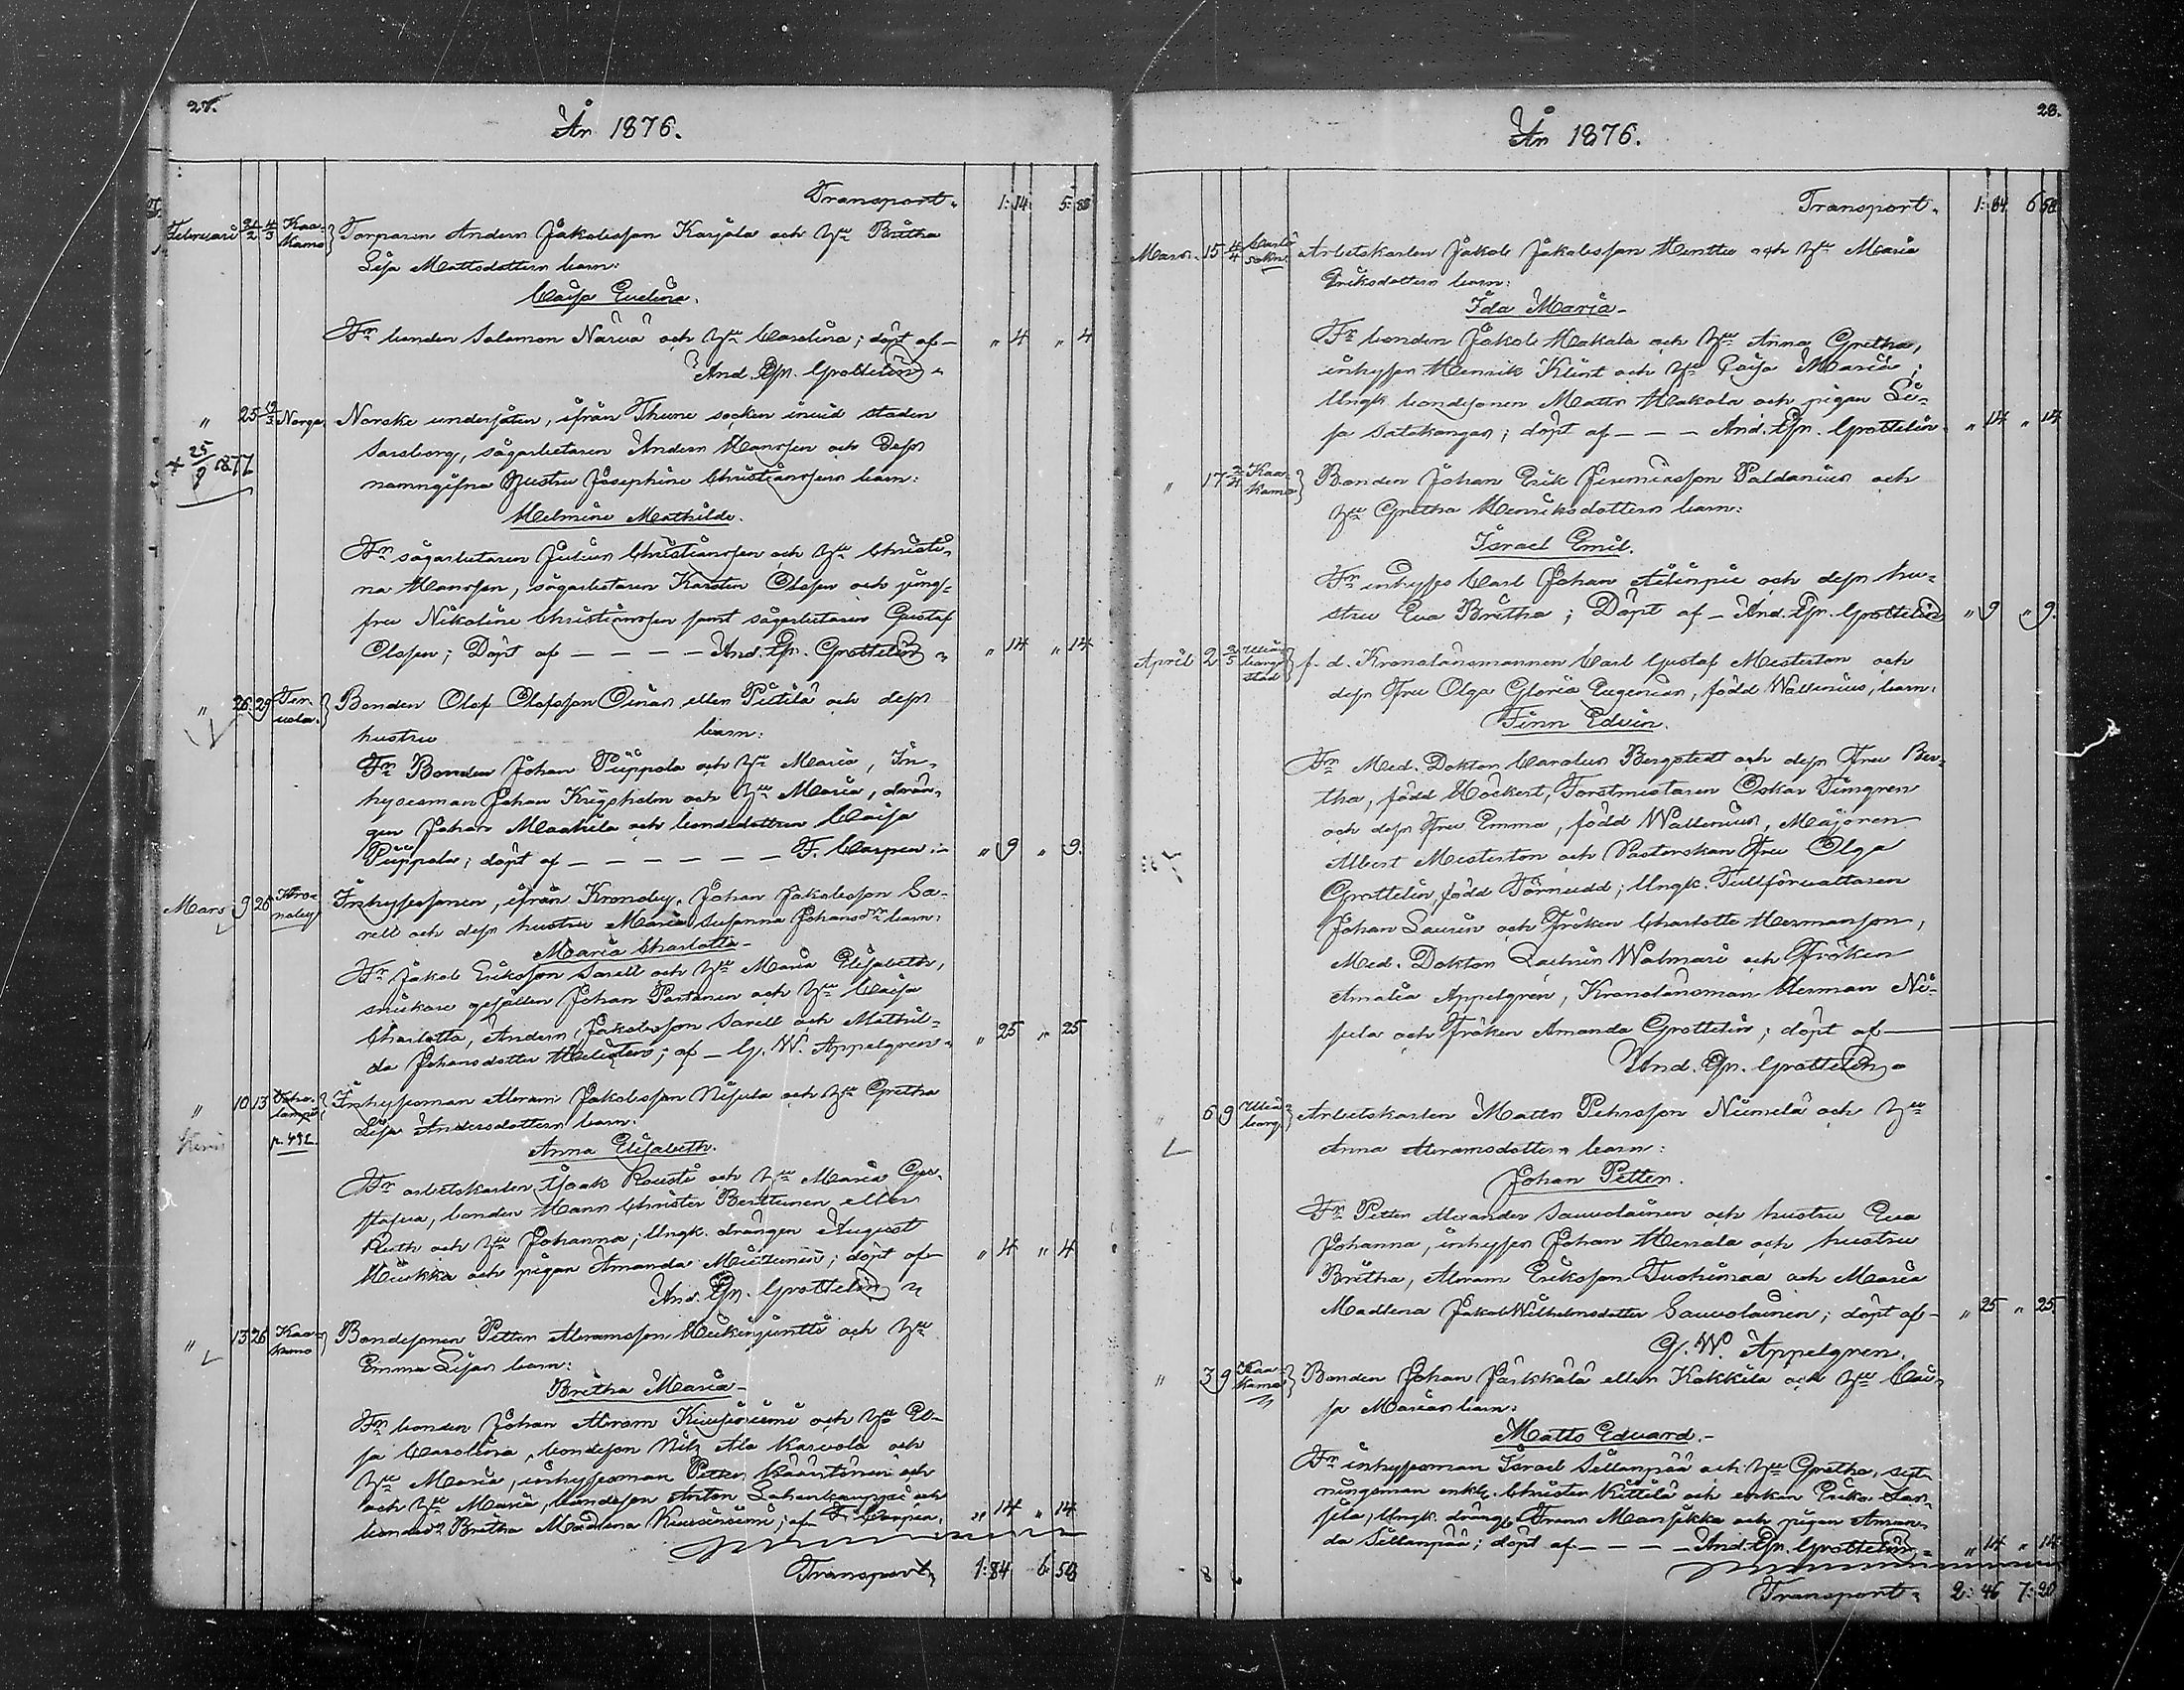 27.
År 1876.
Transport. 1:14 5:88
Februari 21/2 4/3 Kaa-kamo Torparen Anders Jakobsson Karjala och Hu Britha
Lisa Mattsdotters barn:
Caisa Evelina.
Fr bonden Salomon Närvä och Hu Carolina; döpt af — " 4 " 4
And. Gr. Grottelin
" 25 12/3 Norge Norske undersåten, ifrån Thune socken invid staden
Sarsborg, sågarbetaren Anders Hansen och dess
+ 25/9 1877
namngifna hustru Josephine Christiansens barn:
Helmine Mathilde.
Fr sågarbetaren Julius Christiansen och Hu Christi-
na Hansen, sågarbetaren Karsten Olsen och jung-
fru Nikoline Christiansen samt sågarbetaren Gustaf
Olsen; Döpt af — — — — And. Gr. Grottelin " 14 " 14
" 26 29 Ter-vola. Bonden Olof Olofsson Oinas eller Pittilä och dess
hustru barn:
Fr Bonden Johan Piippola och Hu Maria, In-
hysesman Johan Krigsholm och Hu Maria, drän-
gen Johan Maahila och bondedottren Caisa
Piippola; döpt af — — — — — — F. Carpen " 9 " 9.
Mars 9 26 Kro-noby Inhysessonen, ifrån Kronoby, Johan Jakobsson Sa-
rell och dess hustru Maria Susanna Johansdrs barn:
Maria Charlotta
Fr Jakob Eriksson Sarell och Hu Maria Elisabeth,
snickare gesällen Johan Partanen och Hu Caisa
Charlotta, Anders Jakobsson Sarell och Mathil-
da Johansdotter; af — G. W. Appelgren " 25 " 25
" 10 13 Toho-lampi Inhysesman Abram Jakobsson Nisula och Hu Gretha
Kemi p. 492 Lisa Andersdotters barn:
Anna Elisabeth.
Fr arbetskarlen Isaak Rousti och Hu Maria Gu-
stafva, bonden Hans Christer Berttunen eller
Ruth och Hu Johanna; Ungk. drängen August
Miukka och pigan Amanda; döpt af " 4 " 4
And. Gr. Grottelin
" 13 26 Kaa-kamo Bondesonen Petter Abramsson Heikinjuntti och Hu
Emma Lisas barn:
Britha Maria
Fr bonden Johan Abram Kiviperiimi och Hu El-
sa Carolina, bondeson Nils Ala Karvola och
Hu Maria, inhysesman Petter Kääntönen och
och Hu Maria, bondeson Anton Laherkauppi och
bonded: Britha Madlena; af F. Carpen. " 14 " 14
Transport 1:84 6:58
28.
År 1876.
Transport. 1:84 6 58
Mars. 15 4/4 Carlö sokn. Arbetskarlen Jakob Jakobsson Henttu och Hu Maria
Eriksdotters barn:
Ida Maria
Fr bonden Jakob Hakala och Hu Anna Gretha,
inhyses Henrik Klint och Hu Caisa Maria;
Ungk. bondesonen Matts Hakala och pigan Li-
sa Satokangas; döpt af — — — And. Gr. Grottelin " 14 " 14
" 17 2/4 Kaa-kamo Bonden Johan Erik Jeremiasson Paldanius och
Hu Gretha Henriksdotters barn:
Israel Emil.
Fr inhyses Carl Johan Alinpie och dess hu-
stru Eva Britha; Döpt af — And. Gr. Grottelin " 9 " 9.
April 2 2/5 Uleå-borgs stad f. d. Kronolänsmannen Carl Gustaf Mesterton och
dess Fru Olga Gloria Eugenias, född Wallenius, barn:
Finn Edvin.
Fr Med. Doktor Carolus Bergstedt och dess Fru Ber-
tha, född Höckert, Forstmästaren Oskar Timgren
och dess Fru Emma, född Wallenius, Majoren
Albert Mesterton och Pastorskan Fru Olga
Grottelin, född Törnudd; Ungk. Tullförvaltaren
Johan Laurin och Fröken Charlotte Hermanson,
Med. Doktor Walmari och Fröken
Amalia Appelgren, Kronolänsman Herman Ni-
sula och Fröken Amanda Grottelin; döpt af —
And. Gr. Grottelin
" 6 9 Uleå-borg. Arbetskarlen Matts Pehrsson Niemelä och Hu
Anna Abramsdotters barn:
Johan Petter.
Fr Petter Alexander Sauvolainen och hustru Eva
Johanna, inhyses Johan Herrala och hustru
Britha, Abram Eriksson Tuohimaa och Maria
Madlena Jakob Wilhelmsdotter Sauvolainen; döpt af — " 25 " 25
G. W. Appelgren.
" 3 9 Kaa-kamo Bonden Johan Pärkkälä eller Kokkila och Hu Cai-
sa Marias barn:
Matts Eduard.
Fr inhysesman Israel Sillanpää och Hu Gretha, syt-
ningsman enkl. Christer Kittilä och enkan Erika Las-
sila, Ungk. dräng Frans Mansikka och pigan Aman-
da Sillanpää; döpt af — — — — And. Gr. Grottelin " 14 " 14
8
Transport. 2:46 7:20